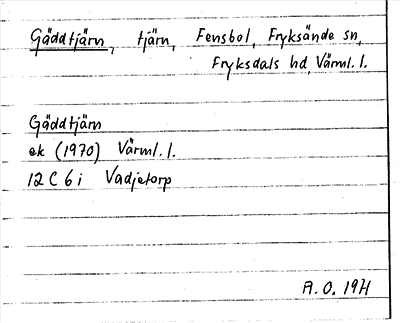 Gäddtjärn, tjärn, Fensbol, Fryksände sn,
Fryksdals hd, Värml. l.
Gäddtjärn
ek (1970) Värml. l.
12 C 6 i Vadjetorp
A. O. 1971